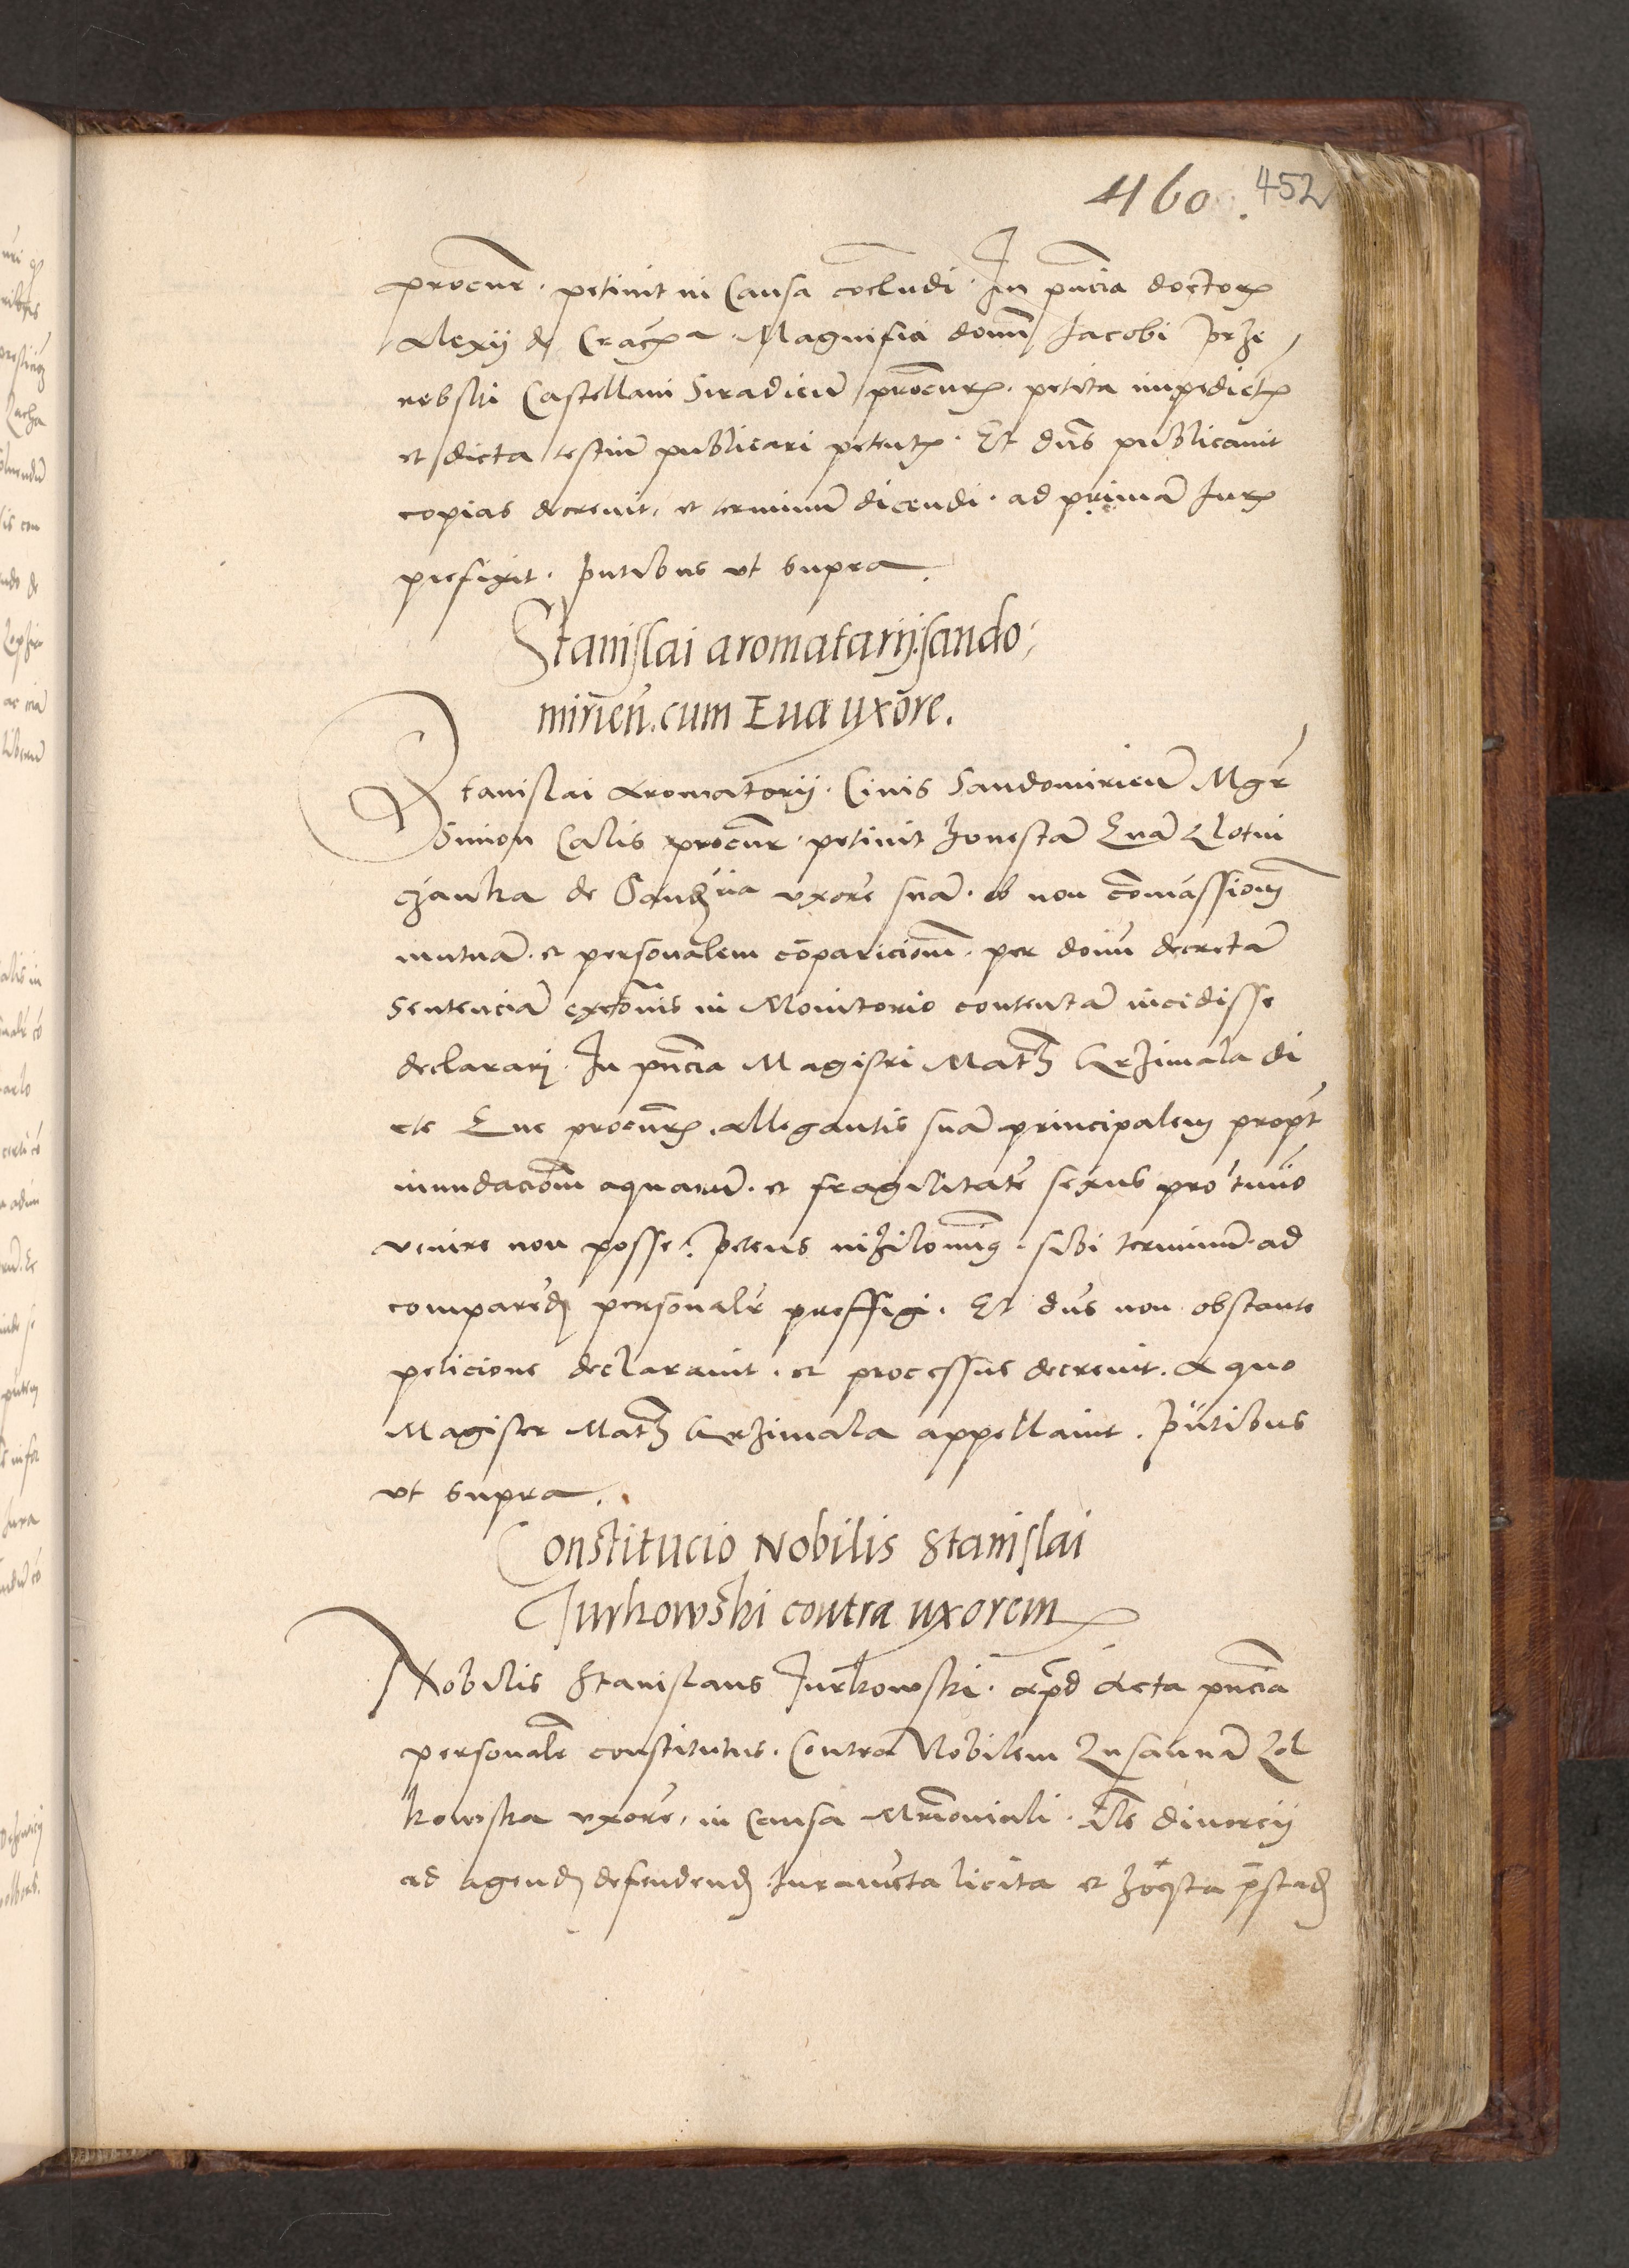 460. 452
procur. petivit in Causa cõcludi. In pñcia doctoris
Alexii de Crac̃ia. Magnifici domini Jacobi Prze
rebski Castellani Siradien̄ procuris. petita impedientis
et dicta testiū publicari petentis. Et dñs publicavit
copias decrevit, et terminū dicendi. ad primā Juris
prefixit. pñtibus ut supra.
Stanislai aromatarij. sando,
mirien̄. cum Eua uxore.
Stanislai Aromatorij. Civis Sandomirien̄ Mgr̄
Simon Calis procur. petivit honestā Evā Zlotni
czanka de Sandᵒria uxorē suā. ob non cōmissionē
mutuā. et personalem cōparicionē. per dominū decretā
Sententiā excōnis in Monitorio contentā incidisse
declararj. In pñcia Magistri Math Grzimala di
cte Eve procuris. allegantis suā principalem propt̄
inundacionē aquarū. et fragilitatē sexus pro tunc
venire non posse. petens nihilominus. sibi terminū. ad
comparēd personalr̄ preffigi. Et dñs non obstante
peticione declaravit. et processus decrevit. A quo
Magister Math Grzimala appellavit. pñtibus
ut supra.
Constitucio Nobilis Stanislai
Jurkowski contra uxorem
Nobilis Stanislaus Jurkowski. apud Acta pñcia
personalr̄ constitutus. Contra Nobilem Zusannā Zol
kowska uxorē, in Causa Mrimoniali. divorcij
ad agend defendend Juramēta licita et honesta prestād